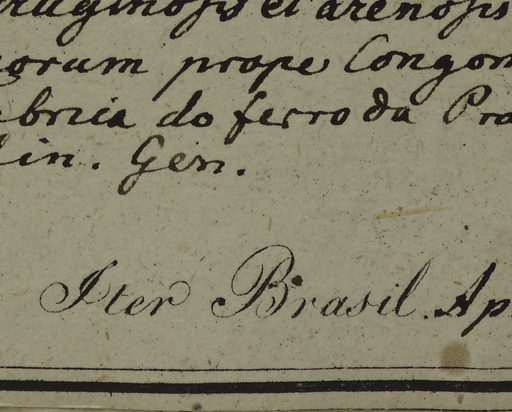 ruginosis et arenosis
orum prope Congon
abrica do ferro da Pra
in. Gen.
Iter Brasil. Ap